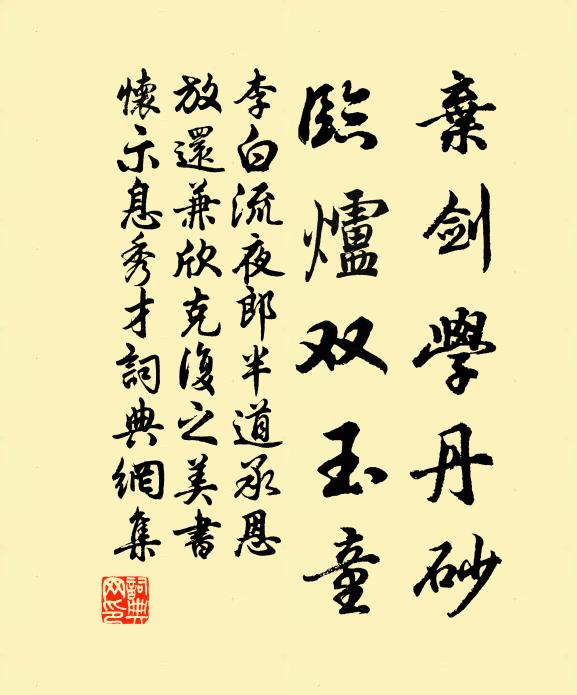 棄剑學丹砂
臨爐双玉童
李白流夜郎半道承恩
放還兼欣克復之美書
懷示息秀才詞典網集
詞典
网印